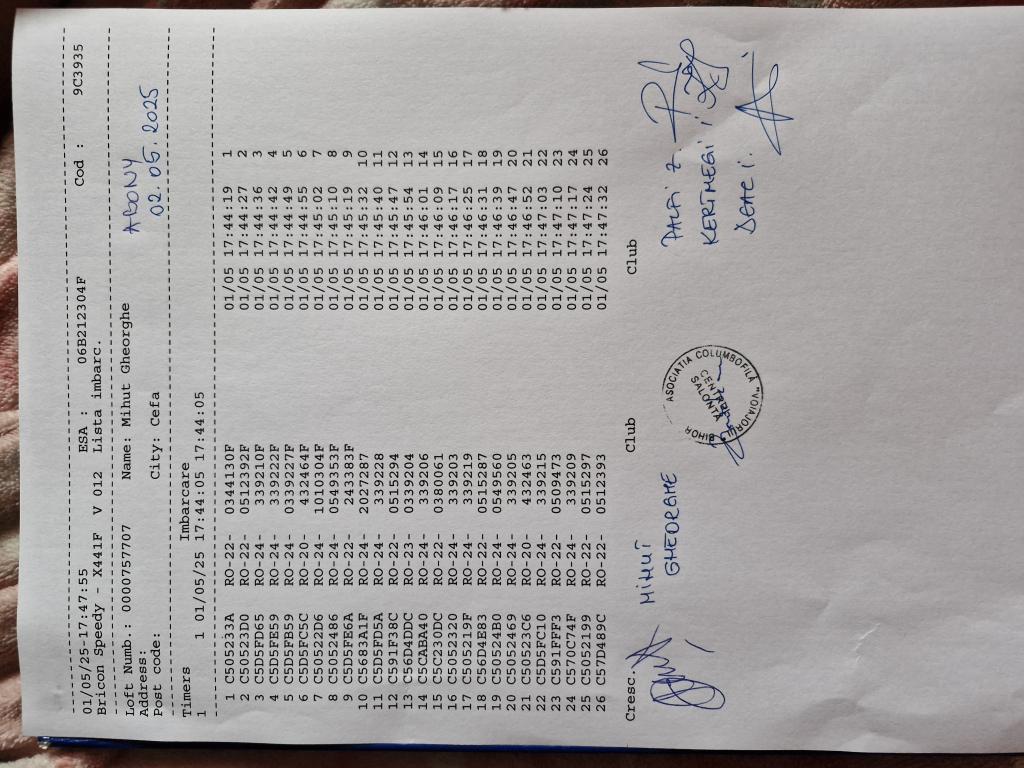 01/05/25-17:47:55 ESA : 06B212304F Cod : 9C3935
Bricon Speedy - X441F V 012 Lista imbarc.
Loft Numb.: 0000757707 Name: Mihut Gheorghe
Address:
Post code: City: Cefa
ABONY
02.05.2025
Timers Imbarcare
1 1 01/05/25 17:44:05 17:44:05
1 C505233A RO-22- 0344130F 01/05 17:44:19 1
2 C50523D0 RO-22- 0512392F 01/05 17:44:27 2
3 C5D5FD65 RO-24- 339210F 01/05 17:44:36 3
4 C5D5FE59 RO-24- 339222F 01/05 17:44:42 4
5 C5D5FB59 RO-24- 0339227F 01/05 17:44:49 5
6 C5D5FC5C RO-20- 432464F 01/05 17:44:55 6
7 C50522D6 RO-24- 1010304F 01/05 17:45:02 7
8 C5052486 RO-22- 0549353F 01/05 17:45:10 8
9 C5D5FE6A RO-22- 243383F 01/05 17:45:19 9
10 C5683A1F RO-24- 2027287 01/05 17:45:32 10
11 C5D5FD5A RO-24- 339228 01/05 17:45:40 11
12 C591F38C RO-22- 0515294 01/05 17:45:47 12
13 C56D4DDC RO-23- 0339204 01/05 17:45:54 13
14 C5CABA40 RO-24- 339206 01/05 17:46:01 14
15 C5C230DC RO-22- 0380061 01/05 17:46:09 15
16 C5052320 RO-24- 339203 01/05 17:46:17 16
17 C505219F RO-24- 339219 01/05 17:46:25 17
18 C56D4E83 RO-22- 0515287 01/05 17:46:31 18
19 C50524B0 RO-22- 0549560 01/05 17:46:39 19
20 C5052469 RO-24- 339205 01/05 17:46:47 20
21 C50523C6 RO-20- 432463 01/05 17:46:52 21
22 C5D5FC10 RO-24- 339215 01/05 17:47:03 22
23 C591FFF3 RO-22- 0509473 01/05 17:47:10 23
24 C570C74F RO-24- 339209 01/05 17:47:17 24
25 C5052199 RO-22- 0515297 01/05 17:47:24 25
26 C57D489C RO-22- 0512393 01/05 17:47:32 26
Cresc. Club Club
MIHUȚ
GHEORGHE
ASOCIATIA COLUMBOFILA "VOIAJORUL" BIHOR
CENTRU
SALONTA
PALFI Z.
KERTMEGI I.
DEAC I.